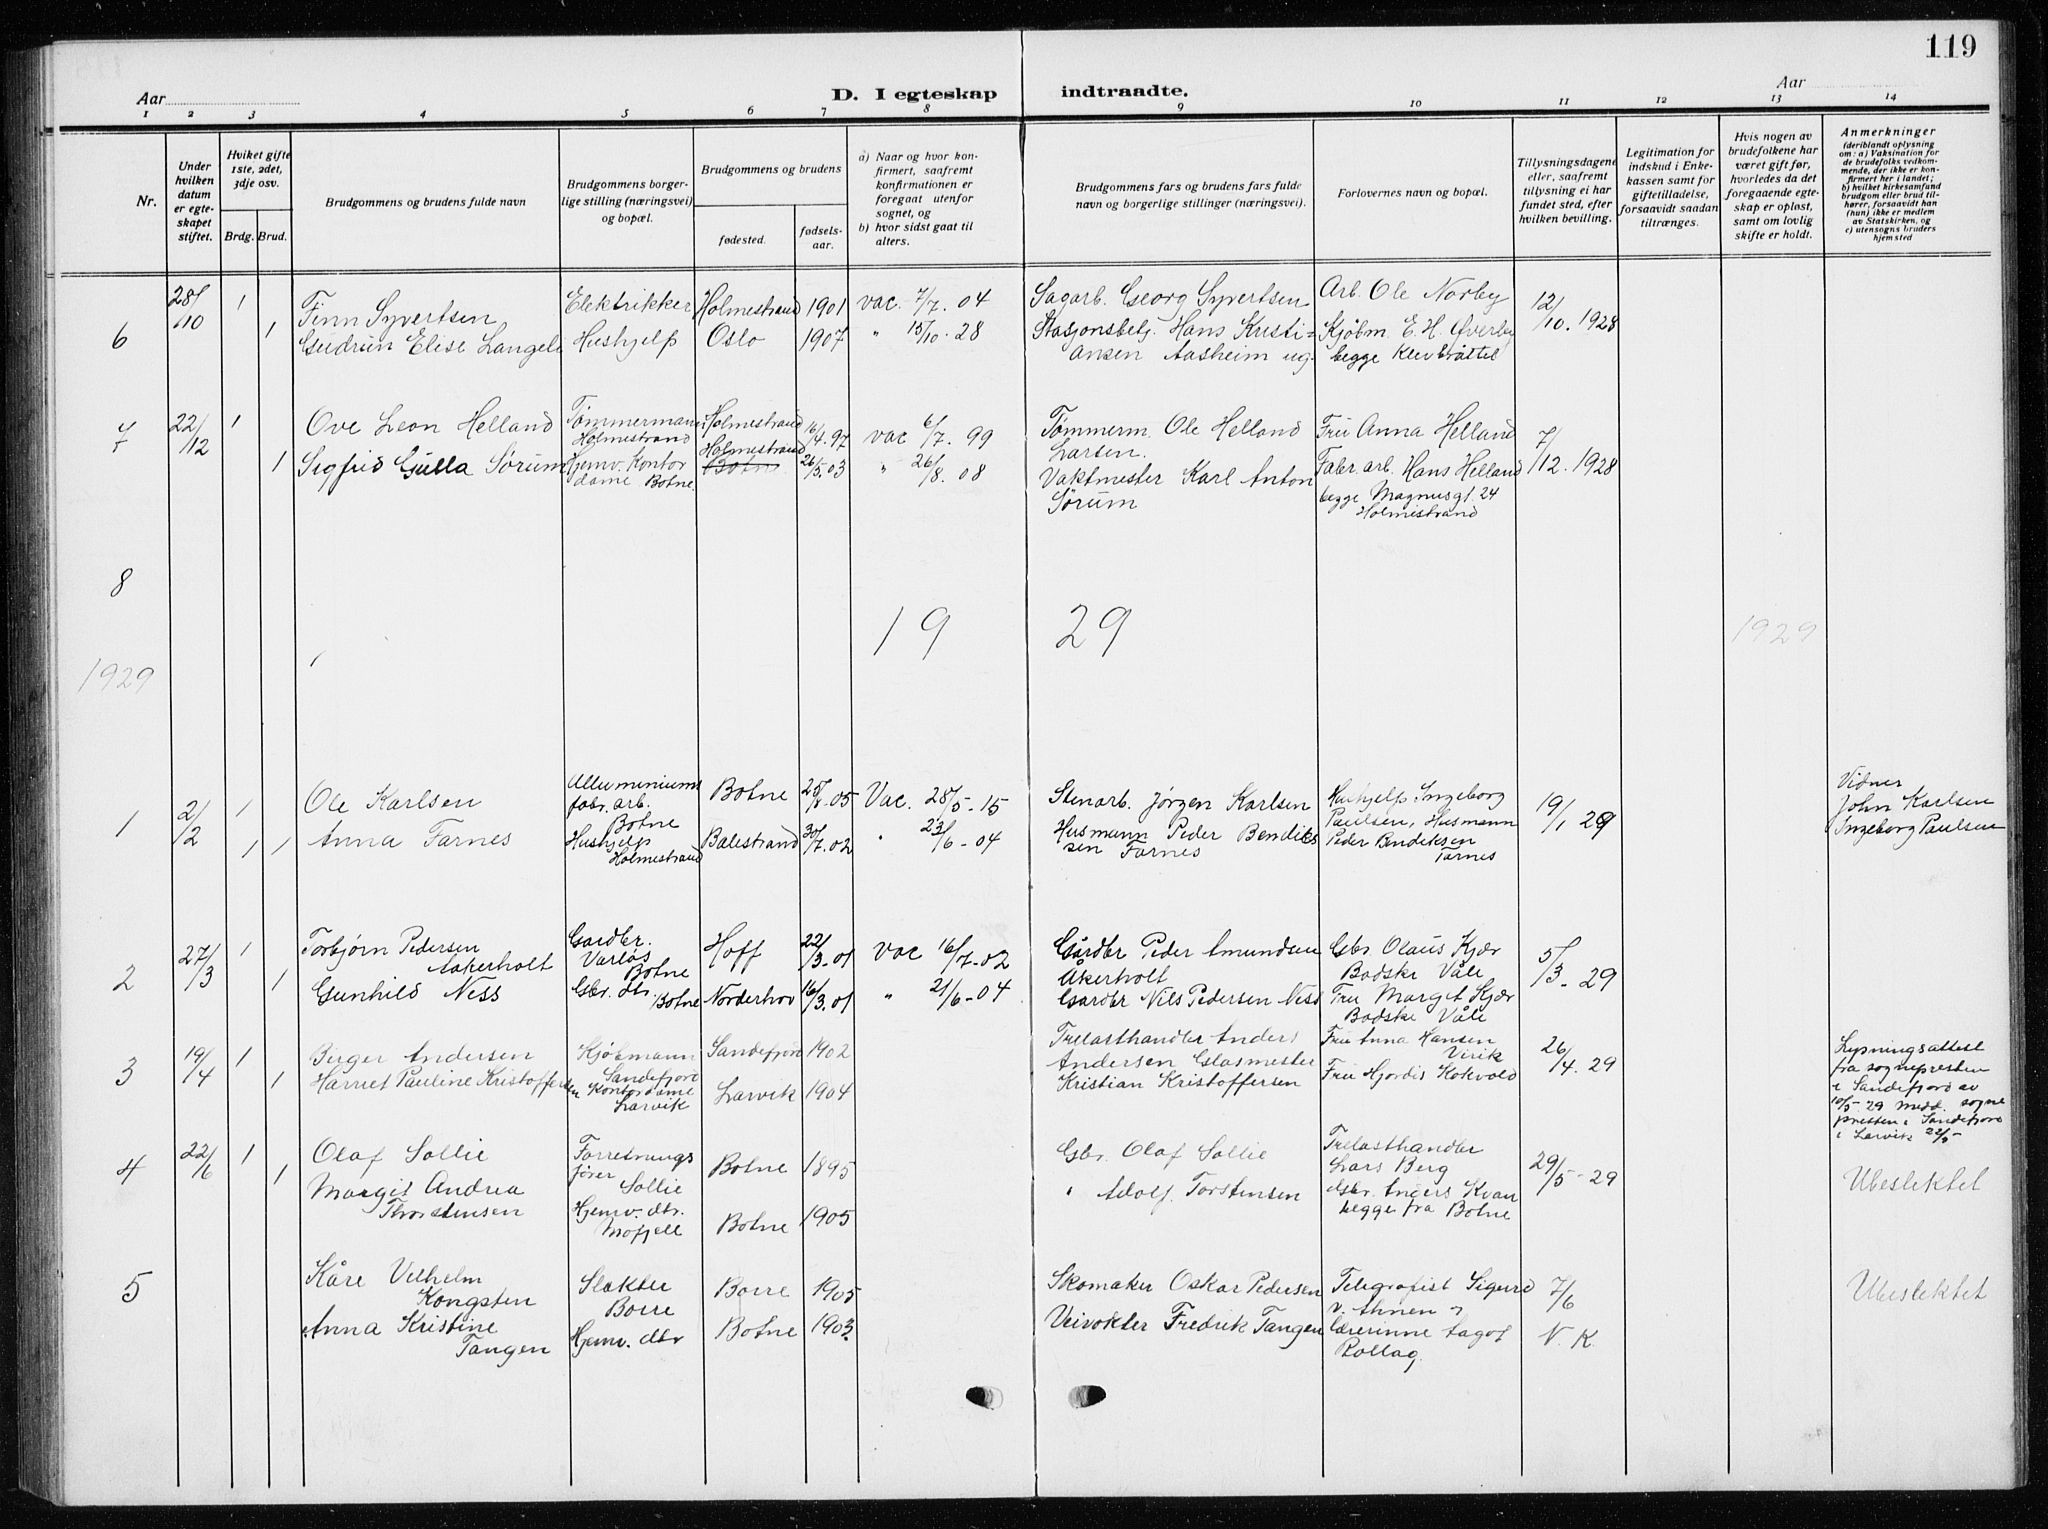 119
Aar
D. I egteskap
indtraadte.
Aar
1 2 3 4 5 6 7 8 9 10 11 12 13 14
Nr.
Under hvilken datum er egteskapet stiftet.
Hviket gifte 1ste, 2det, 3dje osv.
Brdg. Brud.
Brudgommens og brudens fulde navn
Brudgommens borgerlige stilling (næringsvei) og bopæl.
Brudgommens og brudens
fødested.
fødselsaar.
a) Naar og hvor konfirmert, saafremt konfirmationen er foregaat utenfor sognet, og
b) hvor sidst gaat til alters.
Brudgommens fars og brudens fars fulde navn og borgerlige stillinger (næringsvei).
Forlovernes navn og bopæl.
Tillysningsdagene eller, saafremt tillysning ei har fundet sted, efter hvilken bevilling.
Legitimation for indskud i Enkekassen samt for giftetilladelse, forsaavidt saadan tiltrænges.
Hvis nogen av brudefolkene har været gift før, hvorledes da det foregaaende egteskap er opløst, samt om lovlig skifte er holdt.
Anmerkninger
(deriblandt oplysning om: a) Vaksination for de brudefolks vedkommende, der ikke er konfirmert her i landet;
b) hvilket kirkesamfund brudgom eller brud tilhører, forsaavidt han (hun) ikke er medlem av Statskirken, og
c) utensogns bruders hjemsted
6 28/10 1 Finn Syvertsen Elektrikker Holmestrand 1901 vac. 7/7. 04 Sagarb. Georg Syvertsen Arb. Ole Norby 12/10. 1928
1 Gudrun Elise Langeli Hushjelp Oslo 1907 " 15/10. 28 Stasjonsbetj. Hans Kristi= Kjøbm. E. H. Øverby
ansen Aasheim ug. begge Klevbråttel
7 22/12 1 Ove Leon Helland Tømmermann Holmestrand Holmestrand 16/4. 97 vac 6/7. 99 Tømmerm. Ole Helland Larsen. Fru Anna Helland 7/12. 1928
1 Sigfrid Gulla Sørum Hjemv. Kontor dame Botne. Holmestrand Botne 26/5. 03 " 26/8. 08 Vaktmester Karl Anton Sørum Fabr. arb. Hans Helland
begge Magnusgt. 24
Holmestrand
8
19 29
1929
1929
1 2/2 Ole Karlsen Alluminiums fabr. arb. Botne Botne 25/8. 05 Vac. 28/5. 15 Stenarb. Jørgen Karlsen Hushjelp Ingeborg Paulsen, Husmann 19/1 29 Vidner
John Karlsen
Ingeborg Paulsen
1 1 Anna Farnes Hushjelp Holmestrand Balestrand 30/7. 02 " 23/6 - 04 Husmann Peder Bendiks sen Farnes Peder Bendiksen Farnes
2 27/3 1 Torbjørn Pedersen Aakerholt Gardbr. Varløs Botne Hoff 22/3. 01 vac 16/7. 02 Gårdbr Peder Amundsen Åkerholt Gbr. Olaus Kjær
Bodske Våle 5/3. 29
1 Gunhild Ness Gbr. dtr. Botne Norderhov 16/3. 01 " 21/6 - 04 Gardbr Nils Pedersen Ness Fru Marget Kjær
Bodske Våle
3 19/4 1 Birger Andersen Kjøbmann Sandefjord Sandefjord 1902 Trelasthandler Anders Andersen Fru Anna Hansen
Virik 26/4. 29 Lysningsattest
fra sognepresten
i Sandefjord av
10/5 29 medd. sogne
presten i Sandefjord
i Larvik 22/5
1 Harriet Pauline Kristoffersen Kontordame Larvik Larvik 1904 Glasmester Kristian Kristoffersen Fru Hjordis Kokvold
4 22/6 1 Olaf Sollie Forretnings fører Sollie Botne 1895 Gbr. Olaf Sollie Trelasthandler
Lars Berg 29/5 - 29 Ubeslektet
1 Margit Andrea Thorstensen Hjemv. dtr. Mofjell Botne 1905 " Adolf Torstensen Gbr. Anders Kvan
begge fra Botne
5 Kåre Vilhelm Kongsten Slakter Borre Borre 1905 Skomaker Oskar Pedersen Telegrafist Sigurd
v. Ahnen 7/6 Ubeslektet
Anna Kristine Tangen Hjemv. dtr Botne 1903 Veivokter Fredrik Tangen Lærerinne Aagot
Rollag. N. K.